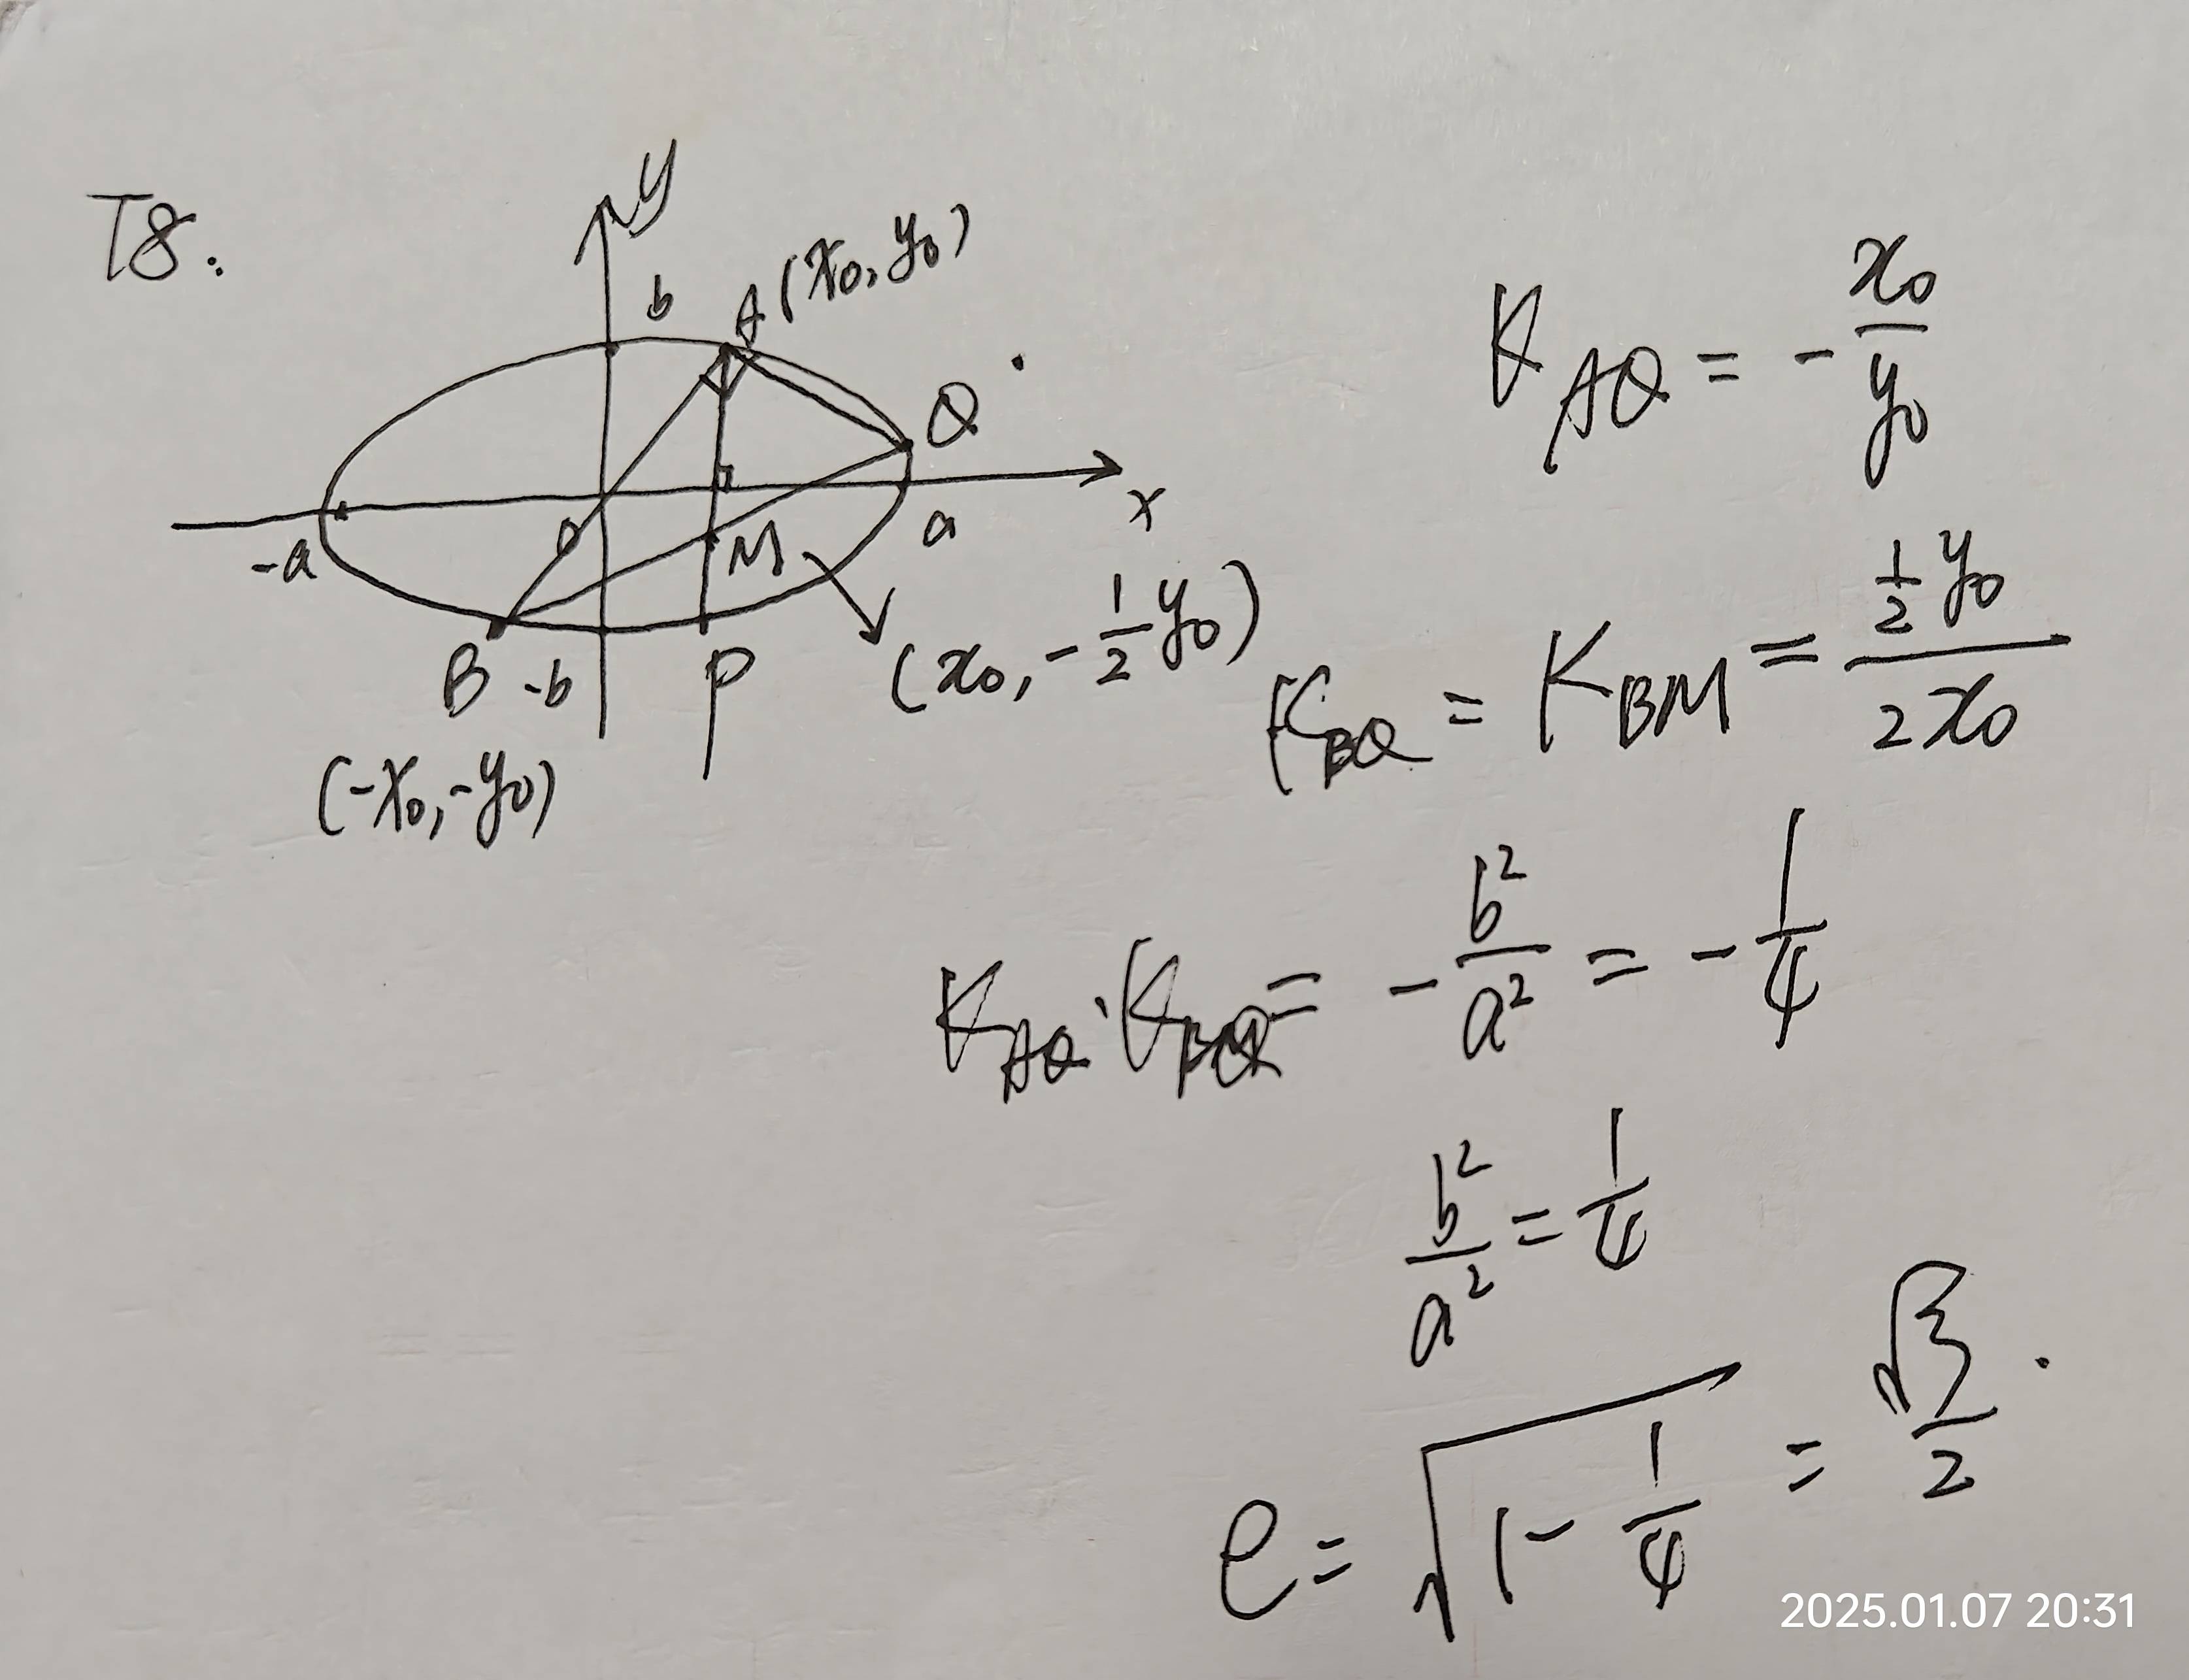 T8.
y
b
A (x₀, y₀)
Q
x
-a
O
M
a
(x₀, -1/2 y₀)
B
-b
P
(-x₀, -y₀)
K_AQ = - x₀/y₀
K_BQ = K_BM = (1/2 y₀)/(2x₀)
K_AQ · K_BQ = - b²/a² = - 1/4
b²/a² = 1/4
e = √(1 - 1/4) = √3/2 .
2025.01.07 20:31